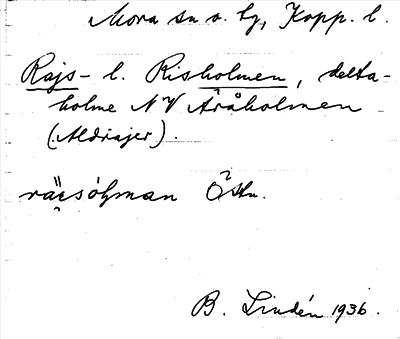 Mora sn o. hg, Kopp. l.
Rajs- l. Risholmen, delta-
holme NV Åråholmen
(Aldrajer).
Östn.
B. Lindén 1936.